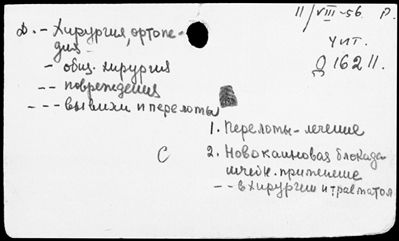 11/VIII-56. Р.
Д. - Хирургия, ортопе-
дия -
чит.
- общ. хирургия
Д 16211.
-- повреждения
--- вывихи и переломы
1. Переломы - лечение
С
2. Новокаиновая блокада
- - в хирургии и травматол.